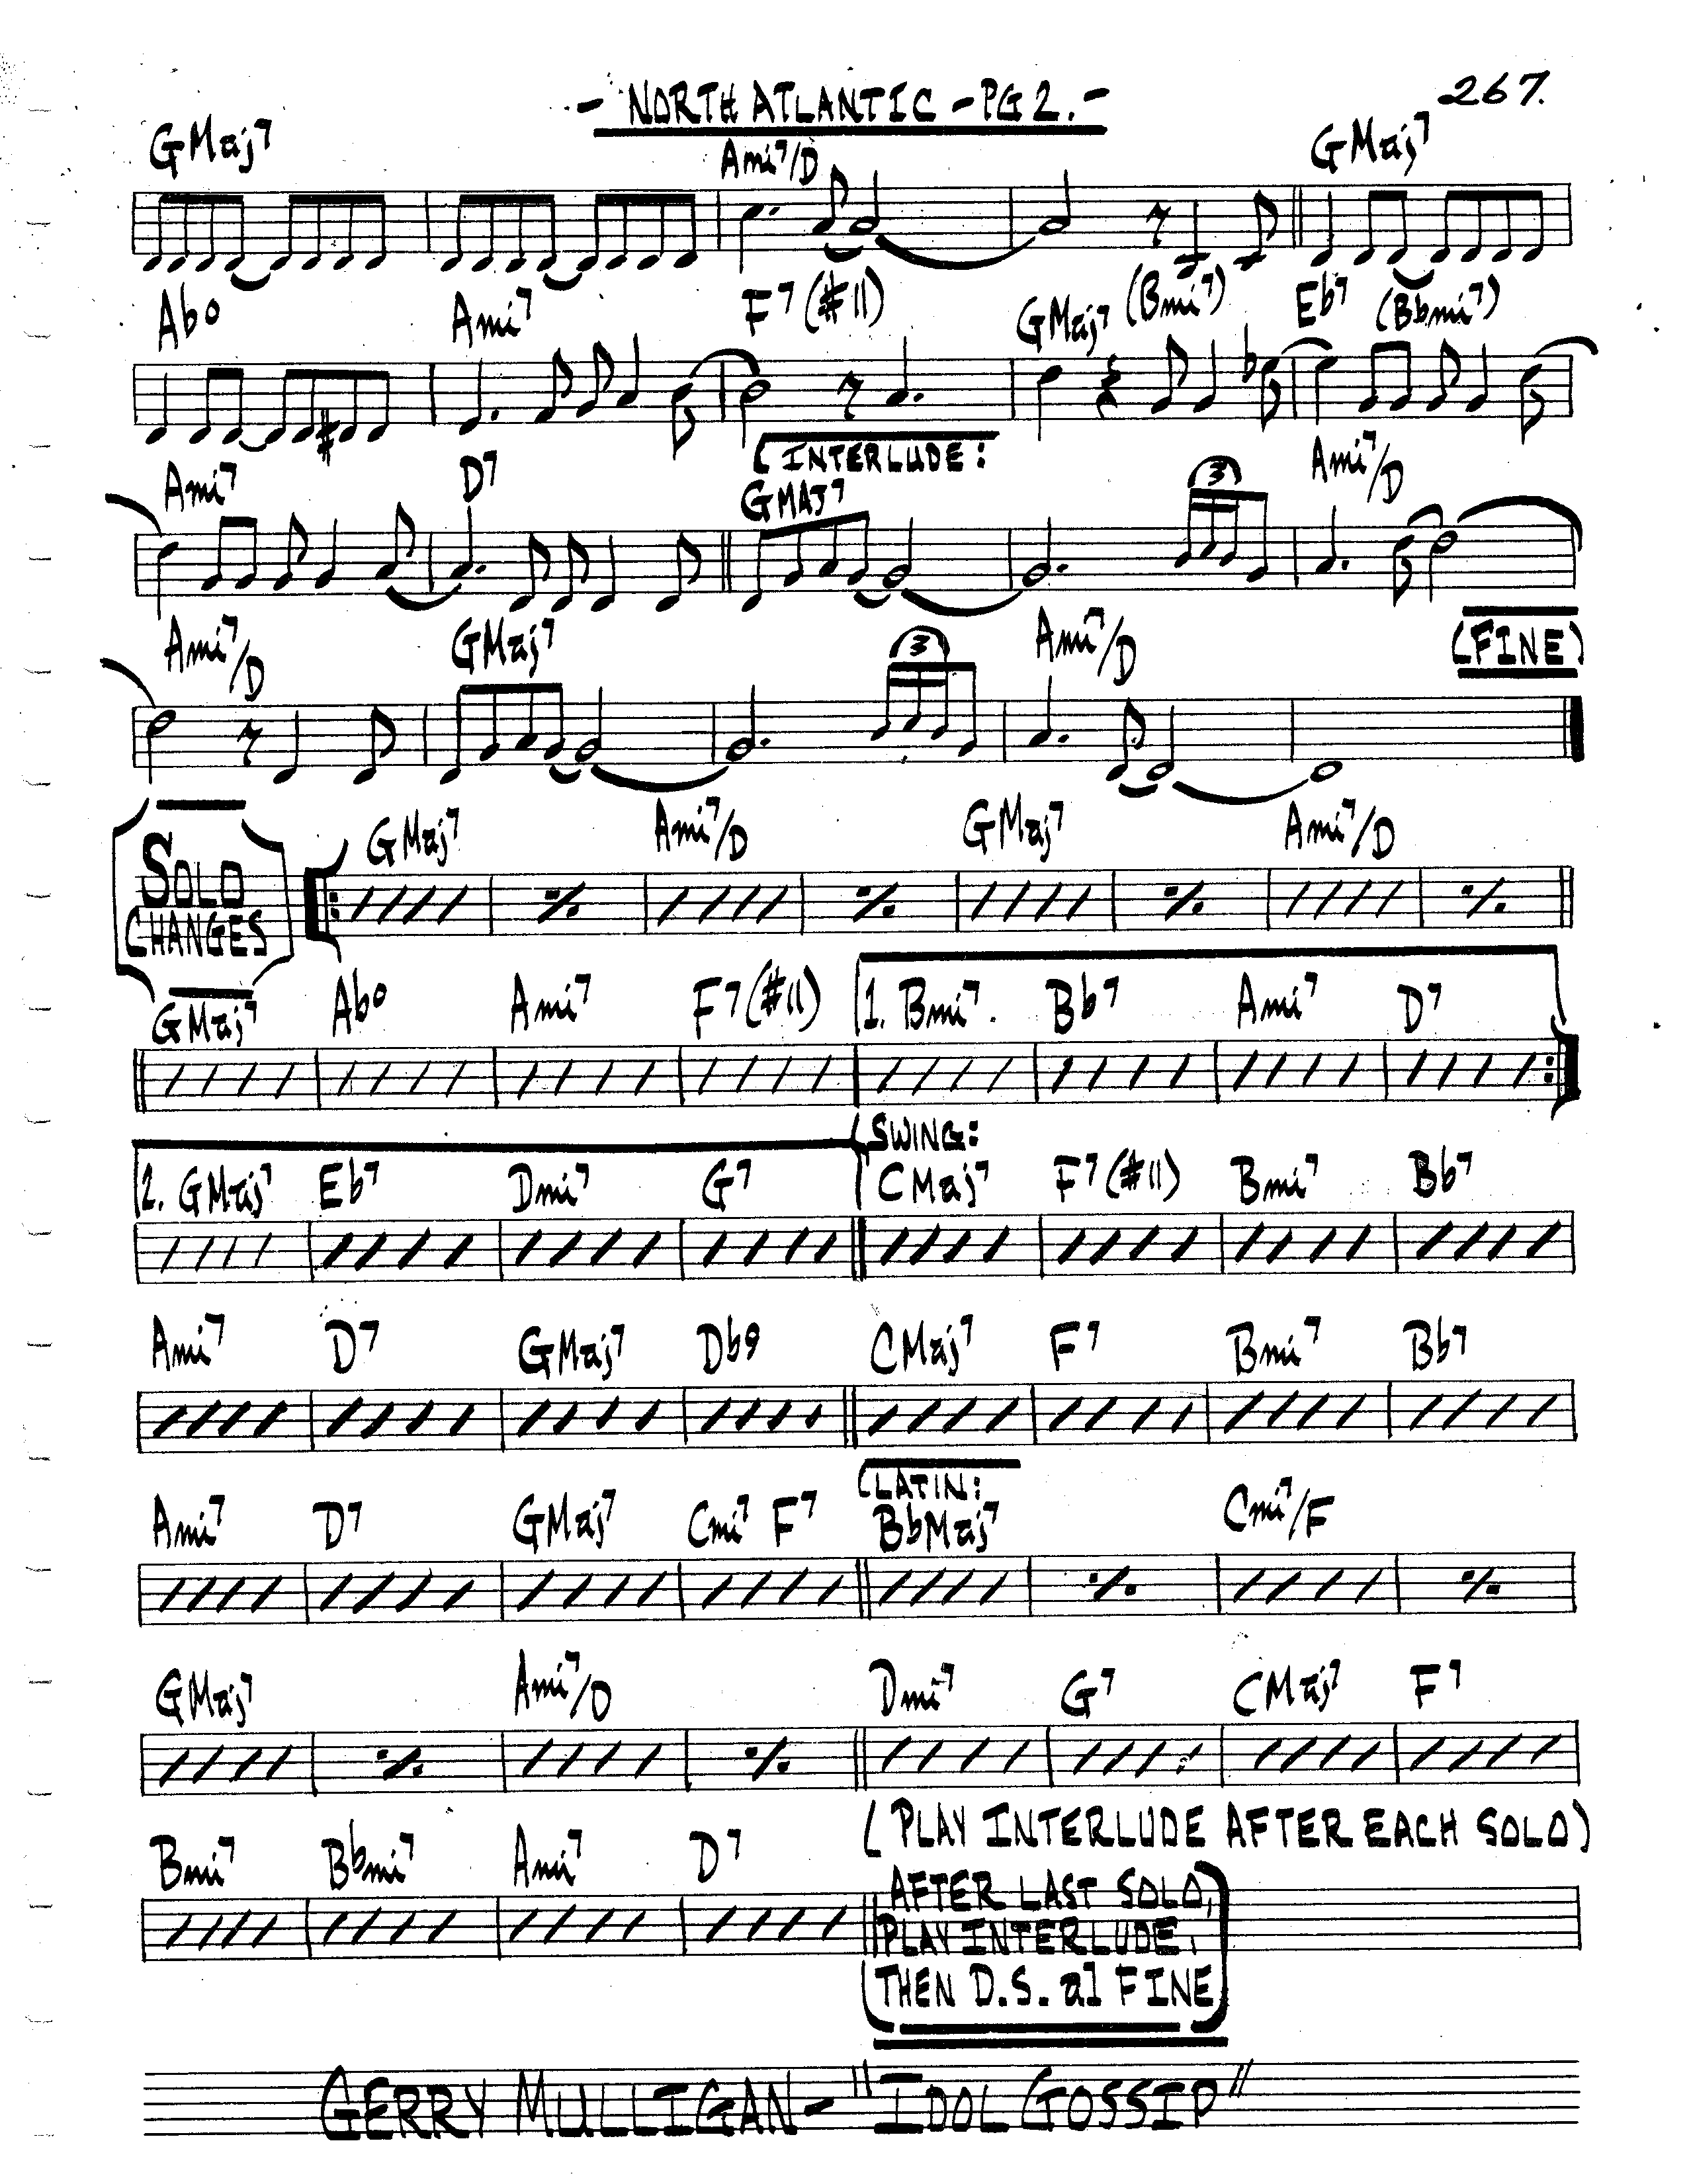 - NORTH ATLANTIC - PG 2. - 267.
GMaj7 Ami7/D GMaj7
Abo Ami7 F7(#11) GMaj7 (Bmi7) Eb7 (Bbmi7)
(INTERLUDE:
Ami7 D7 GMAJ7 3 Ami7/D
(FINE)
Ami7/D GMaj7 3 Ami7/D
SOLO
CHANGES
GMaj7 Ami7/D GMaj7 Ami7/D
GMaj7 Abo Ami7 F7(#11) 1. Bmi7. Bb7 Ami7 D7
(SWING:
2. GMaj7 Eb7 Dmi7 G7 CMaj7 F7(#11) Bmi7 Bb7
Ami7 D7 GMaj7 Db9 CMaj7 F7 Bmi7 Bb7
(LATIN:
Ami7 D7 GMaj7 Cmi7 F7 BbMaj7 Cmi7/F
GMaj7 Ami7/D Dmi7 G7 CMaj7 F7
(PLAY INTERLUDE AFTER EACH SOLO)
Bmi7 Bbmi7 Ami7 D7
AFTER LAST SOLO,
PLAY INTERLUDE,
THEN D.S. al FINE
GERRY MULLIGAN - "IDOL GOSSIP"